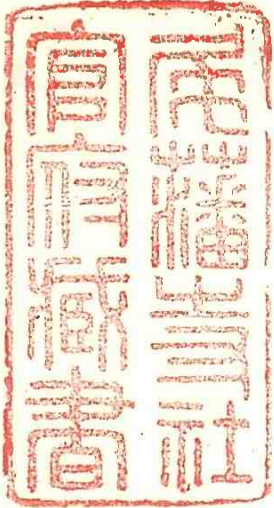 尾藩寺社
官府藏書